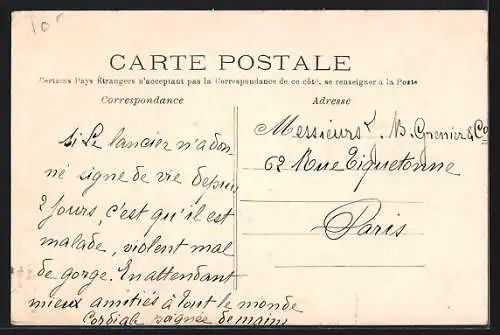 10
CARTE POSTALE
Certains Pays Étrangers n'acceptant pas la Correspondance de ce côté, se renseigner à la Poste
Correspondance
Adresse
Si Le lancier n'a don-
né signe de vie depuis
2 jours, c'est qu'il est
malade, violent mal
de gorge. En attendant
mieux amitiés à tout le monde
Cordiale poignée de mains
Messieurs L. B. Grenier & Co
62 Rue Tiquetonne
Paris